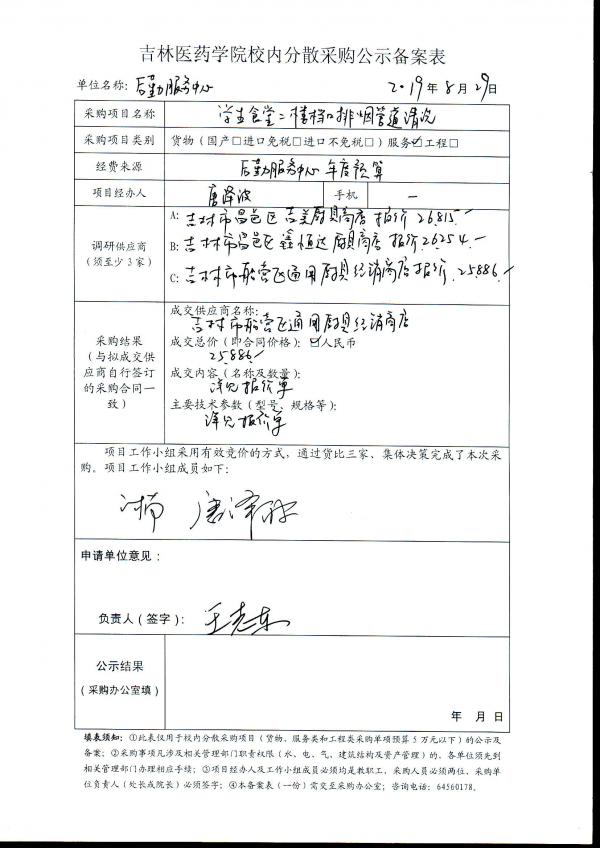 吉林医药学院校内分散采购公示备案表
单位名称：后勤服务中心 2019年8月29日
采购项目名称 学生食堂二楼档口排烟管道清洗
采购项目类别 货物（国产□进口免税□进口不免税□）服务☑工程□
经费来源 后勤服务中心年度预算
项目经办人 唐泽波 手机 —
调研供应商
（须至少3家）
A: 吉林市昌邑区吉美厨具商店 报价 26815.-
B: 吉林市昌邑区鑫恒达厨具商店 报价 26254.-
C: 吉林市船营区通用厨具经销商店报价.25886.-
采购结果
（与拟成交供
应商自行签订
的采购合同一
致）
成交供应商名称:
吉林市船营区通用厨具经销商店
成交总价（即合同价格）：☑人民币
25886.-
成交内容（名称及数量）：
详见报价单
主要技术参数（型号、规格等）：
详见报价单
项目工作小组采用有效竞价的方式，通过货比三家、集体决策完成了本次采
购。项目工作小组成员如下：
唐泽波
申请单位意见：
负责人（签字）：王志东
公示结果
（采购办公室填）
年 月 日
填表须知：①此表仅用于校内分散采购项目（货物、服务类和工程类采购单项预算5万元以下）的公示及
备案；②采购事项凡涉及相关管理部门职责权限（水、电、气、建筑结构及资产管理）的，各单位须先到
相关管理部门办理相应手续；③项目经办人及工作小组成员必须均是教职工，采购人员必须两位，采购单
位负责人（处长或院长）必须签字；④本备案表（一份）需交至采购办公室；咨询电话：64560178。